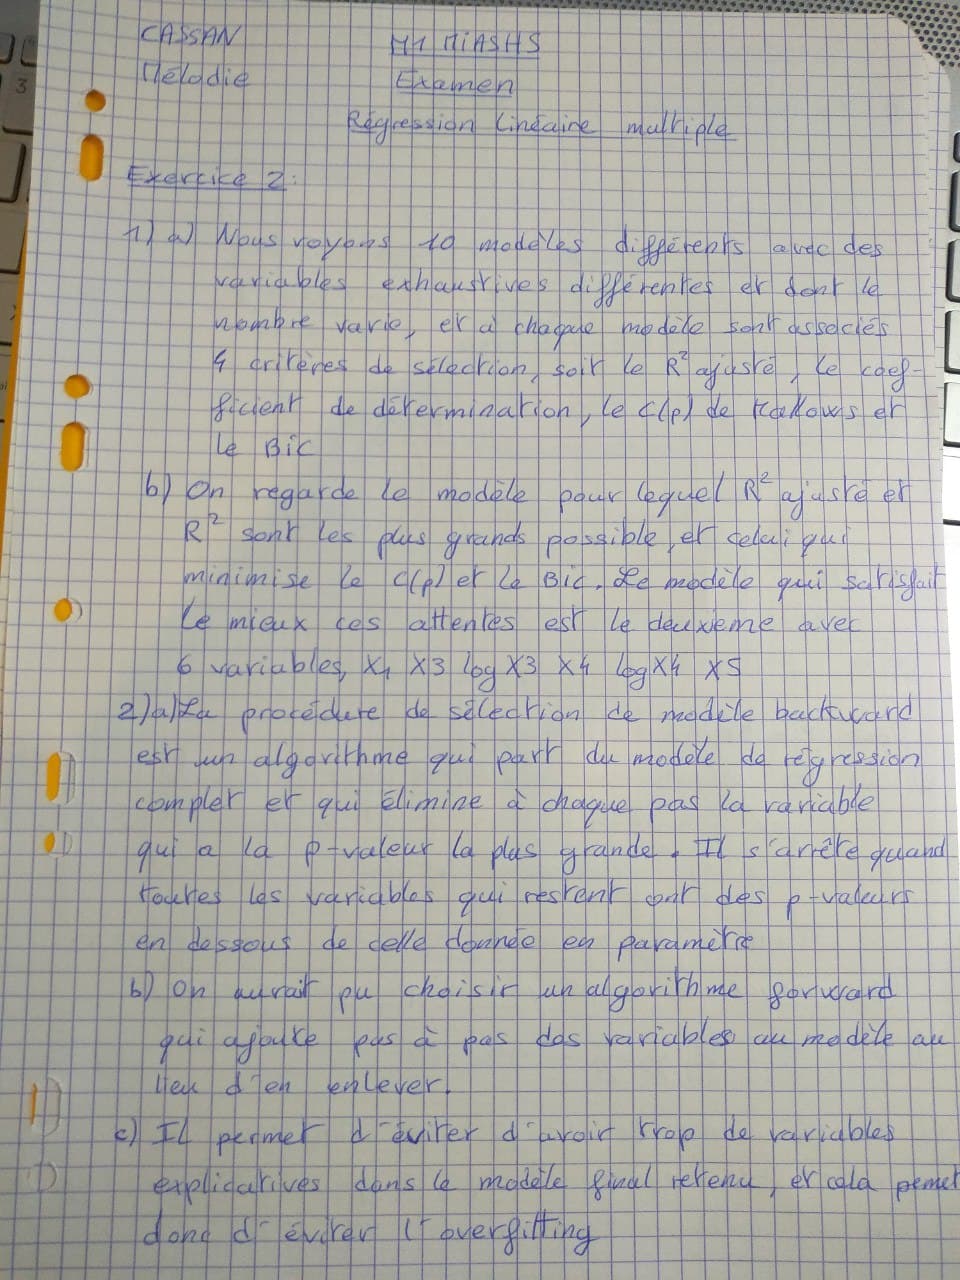 CASSAN
M1 MIASHS
Mélodie
Examen
Régression linéaire multiple
Exercice 2:
1) a) Nous voyons 10 modèles différents avec des
variables exhaustives différentes et dont le
nombre varie, et à chaque modèle sont associés
4 critères de sélection, soit le R² ajusté, le coef-
ficient de détermination, le C(p) de Mallows et
le BiC
b) On regarde le modèle pour lequel R² ajusté et
R² sont les plus grands possible, et celui qui
minimise le C(p) et le Bic. Le modèle qui satisfait
le mieux ces attentes est le deuxième avec
6 variables, X1 X3 log X3 X4 log X4 X5
2) a) La procédure de sélection de modèle backward
est un algorithme qui part du modèle de régression
complet et qui élimine à chaque pas la variable
qui a la p-valeur la plus grande. Il s'arrête quand
toutes les variables qui restent ont des p-valeurs
en dessous de celle donnée en paramètre
b) On aurait pu choisir un algorithme forward
qui ajoute pas à pas des variables au modèle au
lieu d'en enlever.
c) Il permet d'éviter d'avoir trop de variables
explicatives dans le modèle final retenu, et cela permet
donc d'éviter l'overfitting